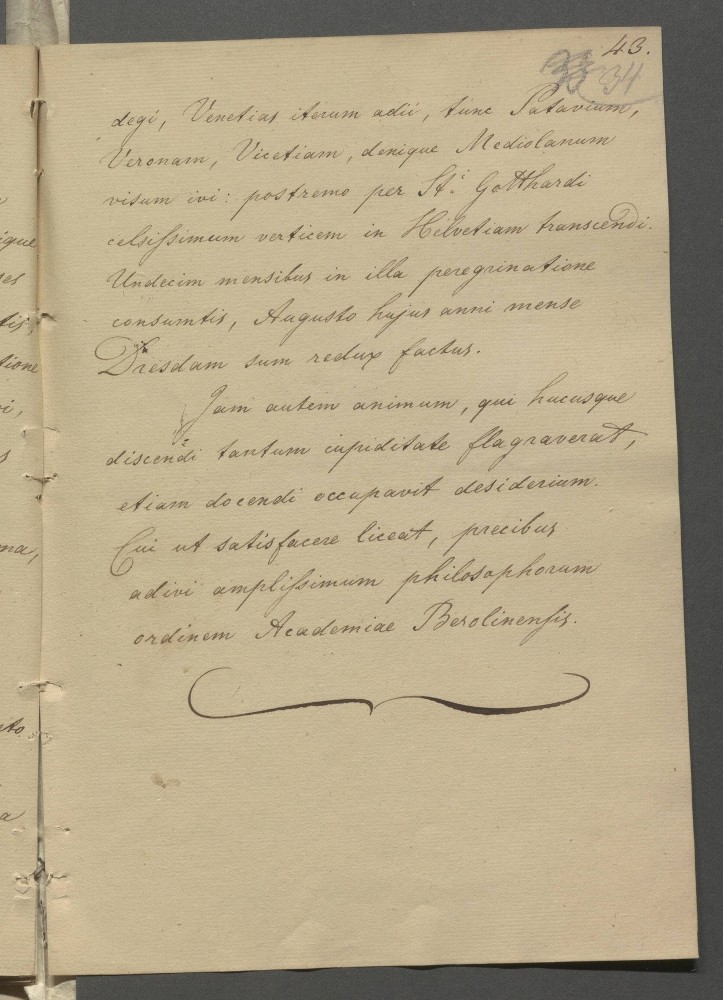 43.
34
degi, Venetias iterum adii, tunc Patavium,
Veronam, Vicetiam, denique Mediolanum
visum ivi: postremo per St.i Gotthardi
celsissimum verticem in Helvetiam transcendi.
Undecim mensibus in illa peregrinatione
consumtis, Augusto hujus anni mense
Dresdam sum redux factus.
Jam autem animum, qui hucusque
discendi tantum cupiditate flagraverat,
etiam docendi occupavit desiderium.
Cui ut satisfacere liceat, precibus
adivi amplissimum philosophorum
ordinem Academiae Berolinensis.